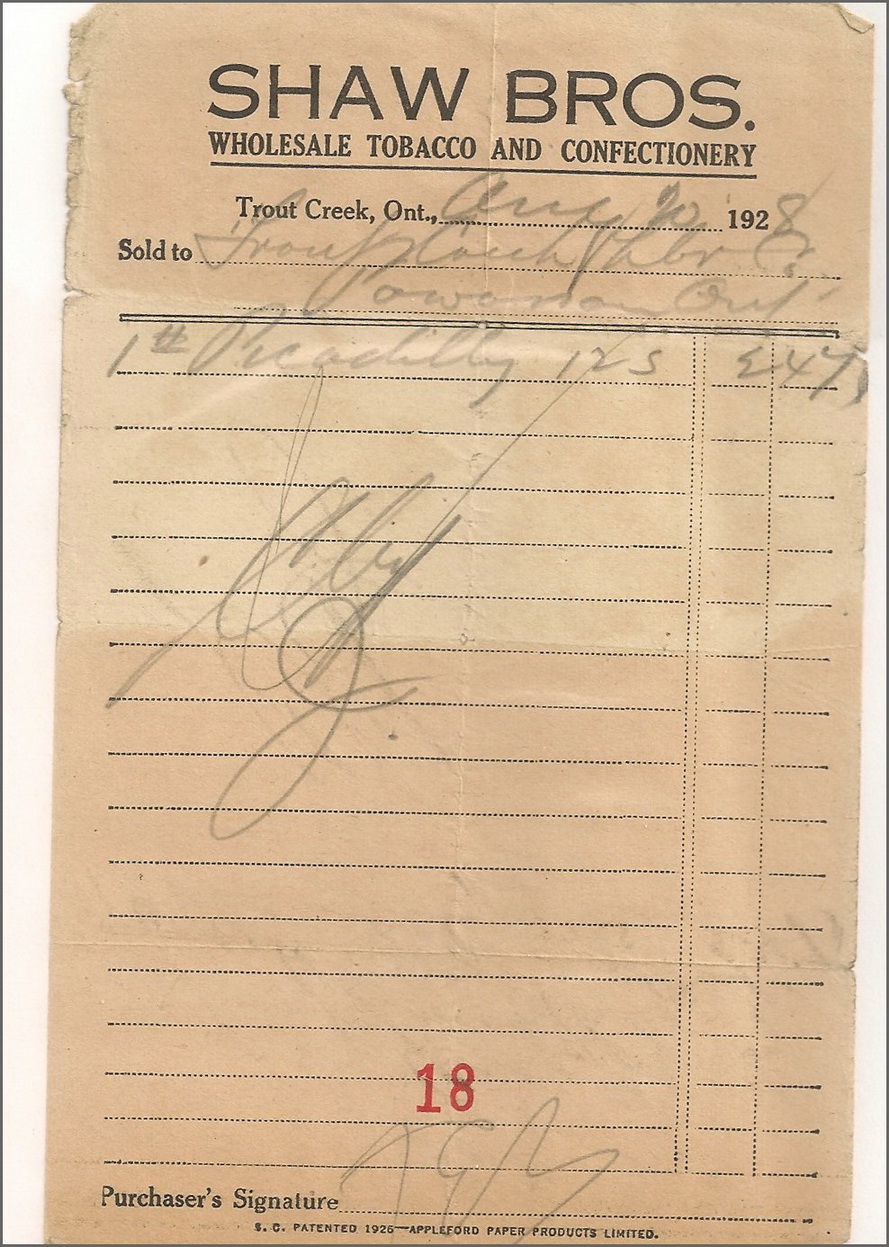 SHAW BROS.
WHOLESALE TOBACCO AND CONFECTIONERY
Trout Creek, Ont., Aug 20 1928
Sold to
Powassan Ont
1# Picadilly 12s 247
18
Purchaser's Signature
S. C. PATENTED 1926—APPLEFORD PAPER PRODUCTS LIMITED.